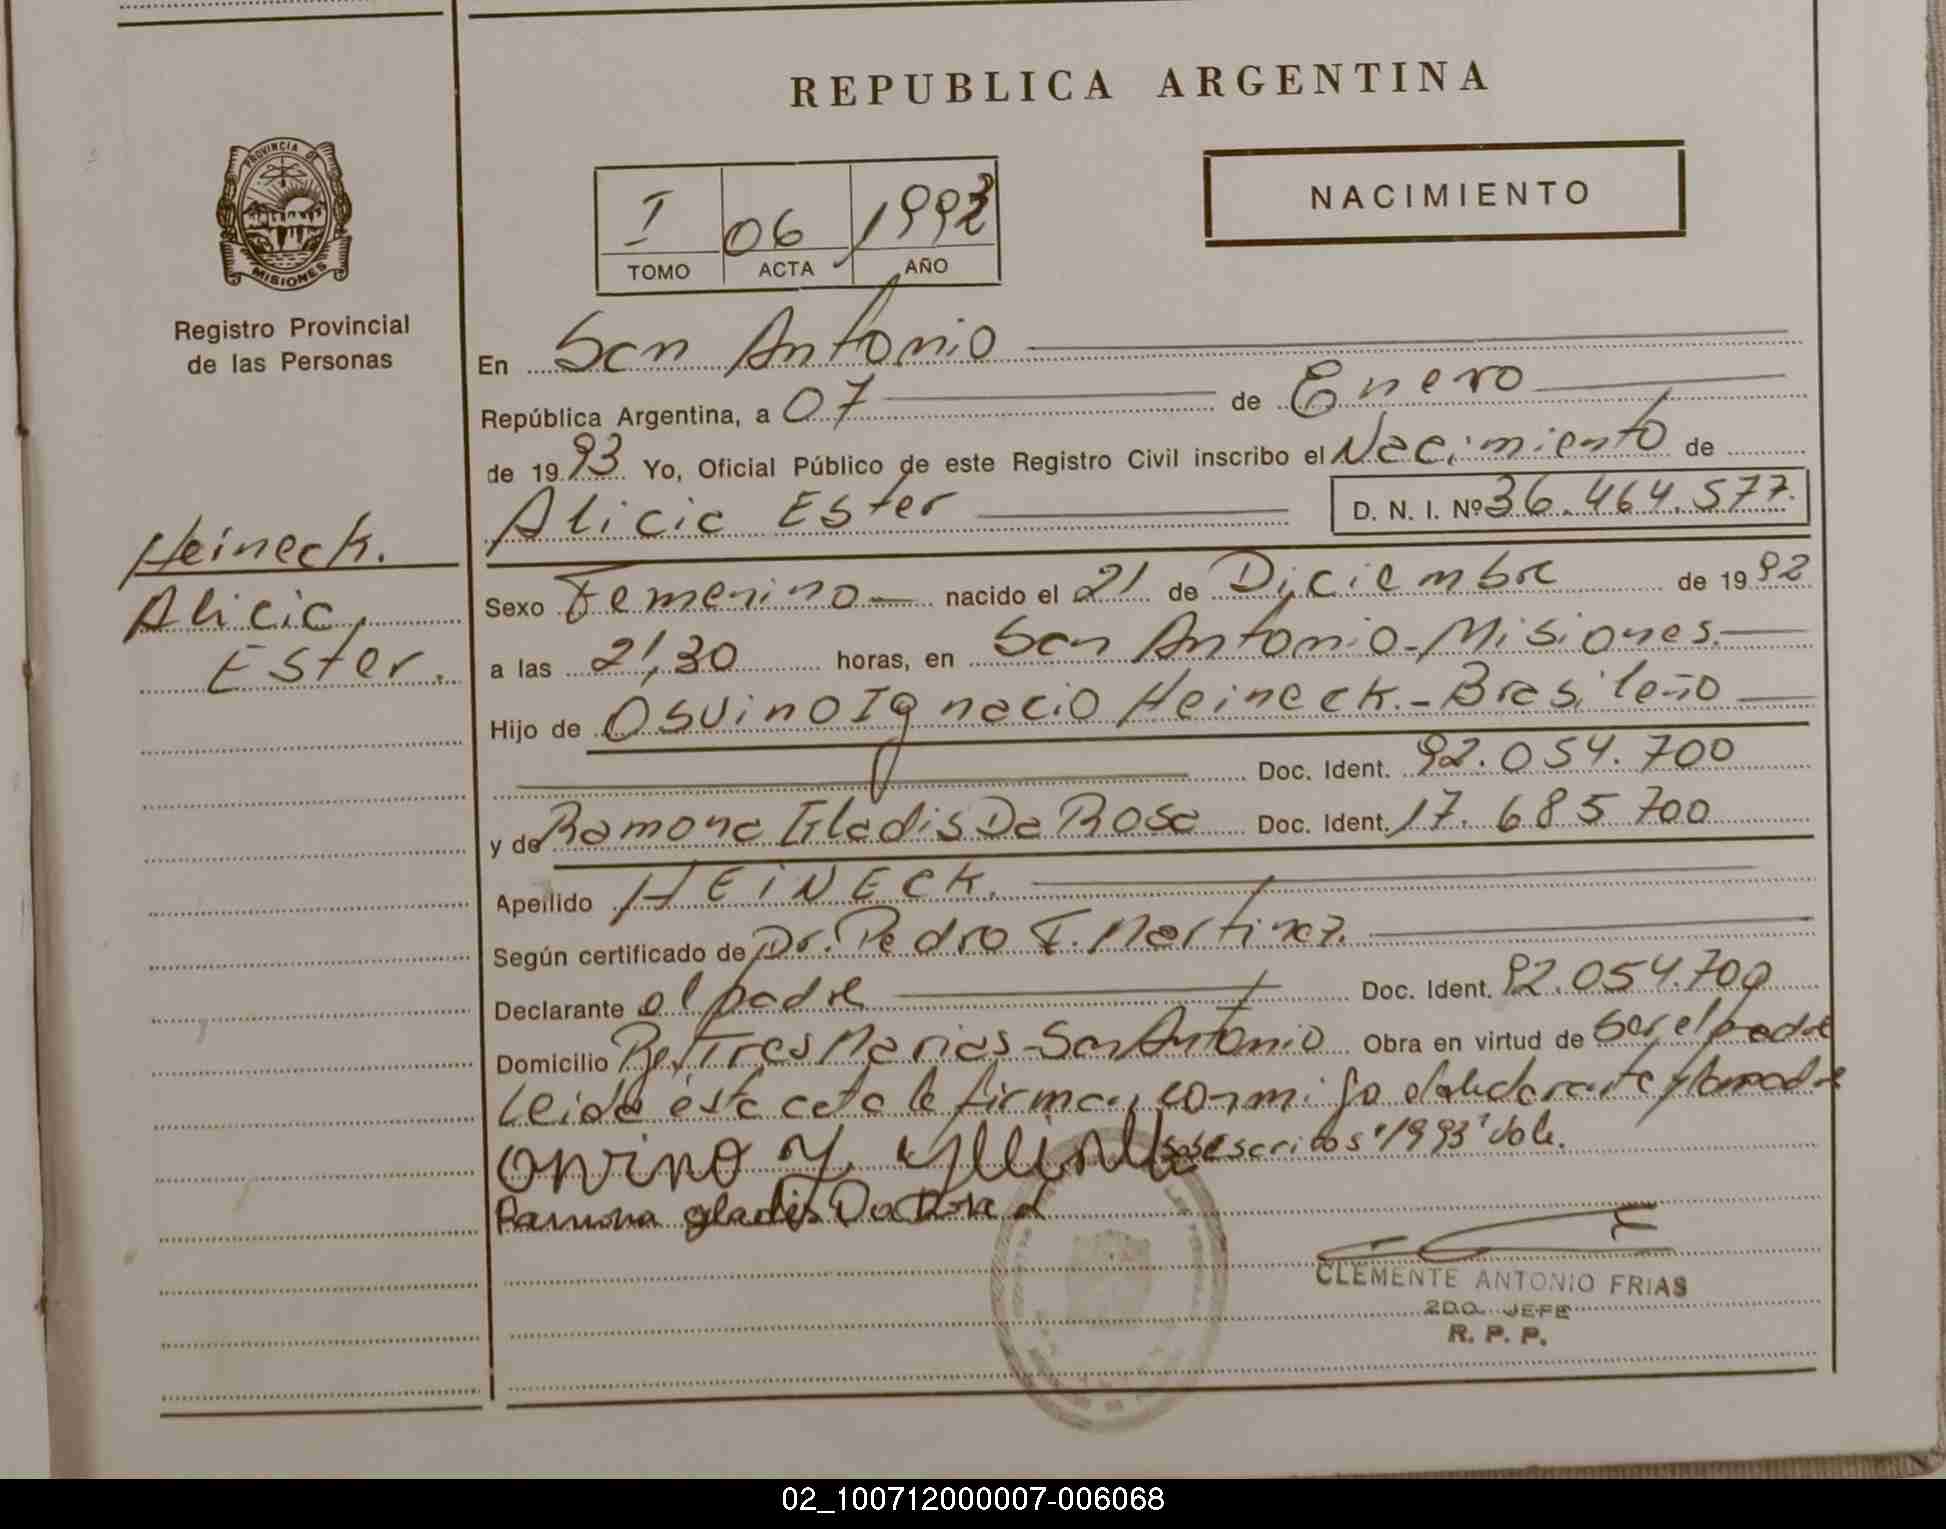 REPUBLICA ARGENTINA
PROVINCIA DE MISIONES
Registro Provincial
de las Personas
I 06 1993
TOMO ACTA AÑO
NACIMIENTO
En San Antonio
República Argentina, a 07 de Enero
de 1993 Yo, Oficial Público de este Registro Civil inscribo el Nacimiento de
Alicia Ester D. N. I. Nº 36.464.577.
Heineck.
Alicia
Ester.
Sexo Femenino nacido el 21 de Diciembre de 1992
a las 21,30 horas, en San Antonio - Misiones.
Hijo de Osvino Ignacio Heineck. - Brasileño
Doc. Ident. 92.054.700
y de Ramona Gladis Da Rosa Doc. Ident. 17.685.700
Apellido HEINECK.
Según certificado de Dr. Pedro F. Martinez.
Declarante el padre Doc. Ident. 92.054.700
Domicilio Tres Marias - San Antonio Obra en virtud de Ser el padre
Leida esta acta la firman conmigo el declarante y la madre
"1993" Vale.
Ramona gladis Da Rosa
CLEMENTE ANTONIO FRIAS
2DO. JEFE
R. P. P.
02_100712000007-006068